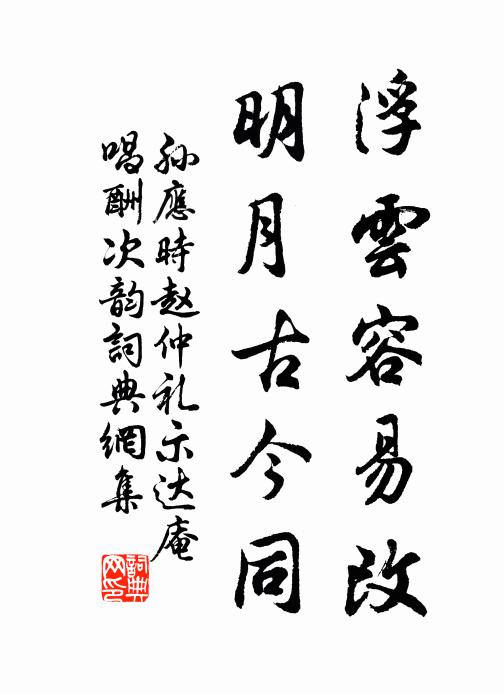 浮雲容易改
明月古今同
孙應時赵仲礼示达庵
唱酬次韵詞典網集
詞典网印